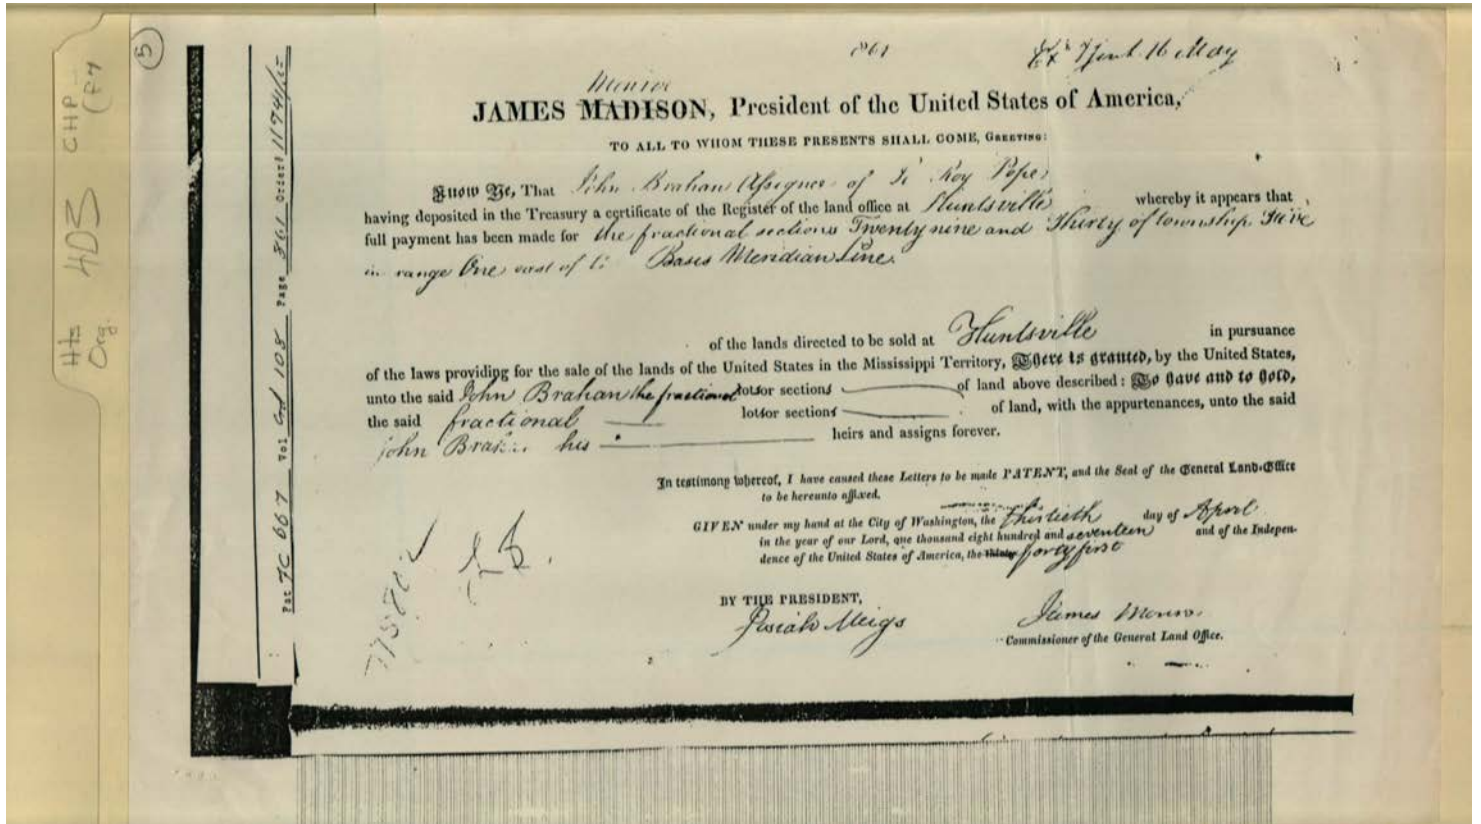 5
Hts 4DS CHP
Org. (F4
Pat 7C 667 Vol Crd 108 Page 361 Order# 11741/15
361
16 May
Monroe
JAMES MADISON, President of the United States of America,
TO ALL TO WHOM THESE PRESENTS SHALL COME, GREETING:
Know Ye, That John Brahan Assignee of Le Roy Pope
having deposited in the Treasury a certificate of the Register of the land office at Huntsville whereby it appears that
full payment has been made for the fractional sections Twenty nine and Thirty of township Five
in range One east of the Basis Meridian Line.
of the lands directed to be sold at Huntsville in pursuance
of the laws providing for the sale of the lands of the United States in the Mississippi Territory, There is granted, by the United States,
unto the said John Brahan the fractional lots or sections of land above described: To have and to hold,
the said fractional lots or sections of land, with the appurtenances, unto the said
John Brahan his heirs and assigns forever.
In testimony whereof, I have caused these Letters to be made PATENT, and the Seal of the General Land-Office
to be hereunto affixed.
GIVEN under my hand at the City of Washington, the thirtieth day of April
in the year of our Lord, one thousand eight hundred and seventeen and of the Indepen-
dence of the United States of America, the thirty forty first
BY THE PRESIDENT,
Josiah Meigs James Monroe
Commissioner of the General Land Office.